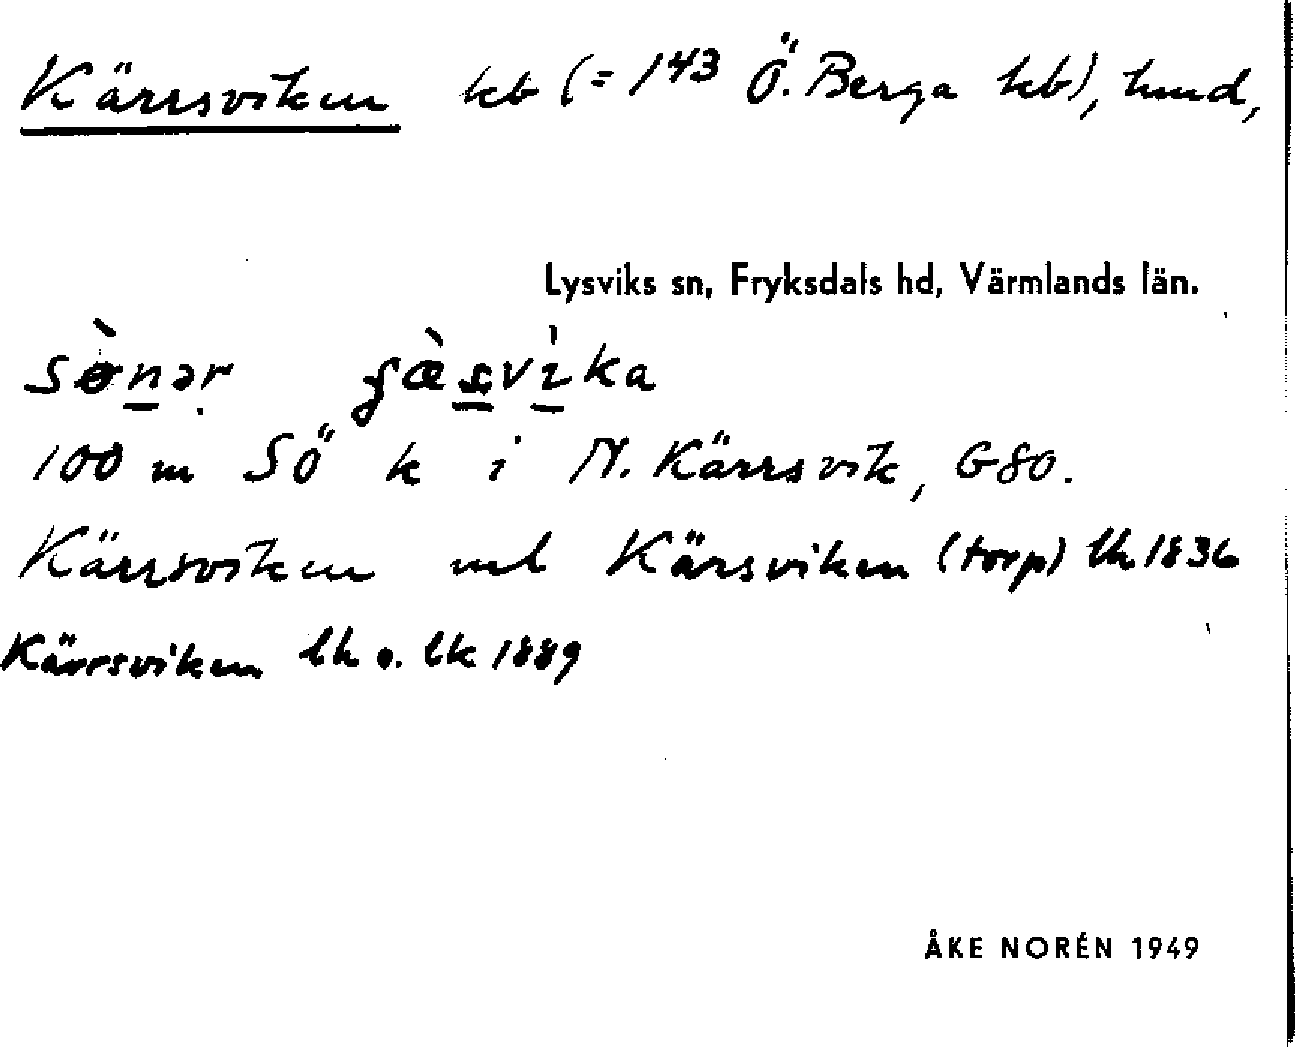 Kärrsviken hb (= 143 Ö. Berga hb), hmd,
Lysviks sn, Fryksdals hd, Värmlands län.
100 m SÖ k i N. Kärrsvik, G80.
Kärrsviken Kärsviken (torp) lh 1836
Kärrsviken lh o. lk 1889
ÅKE NORÉN 1949